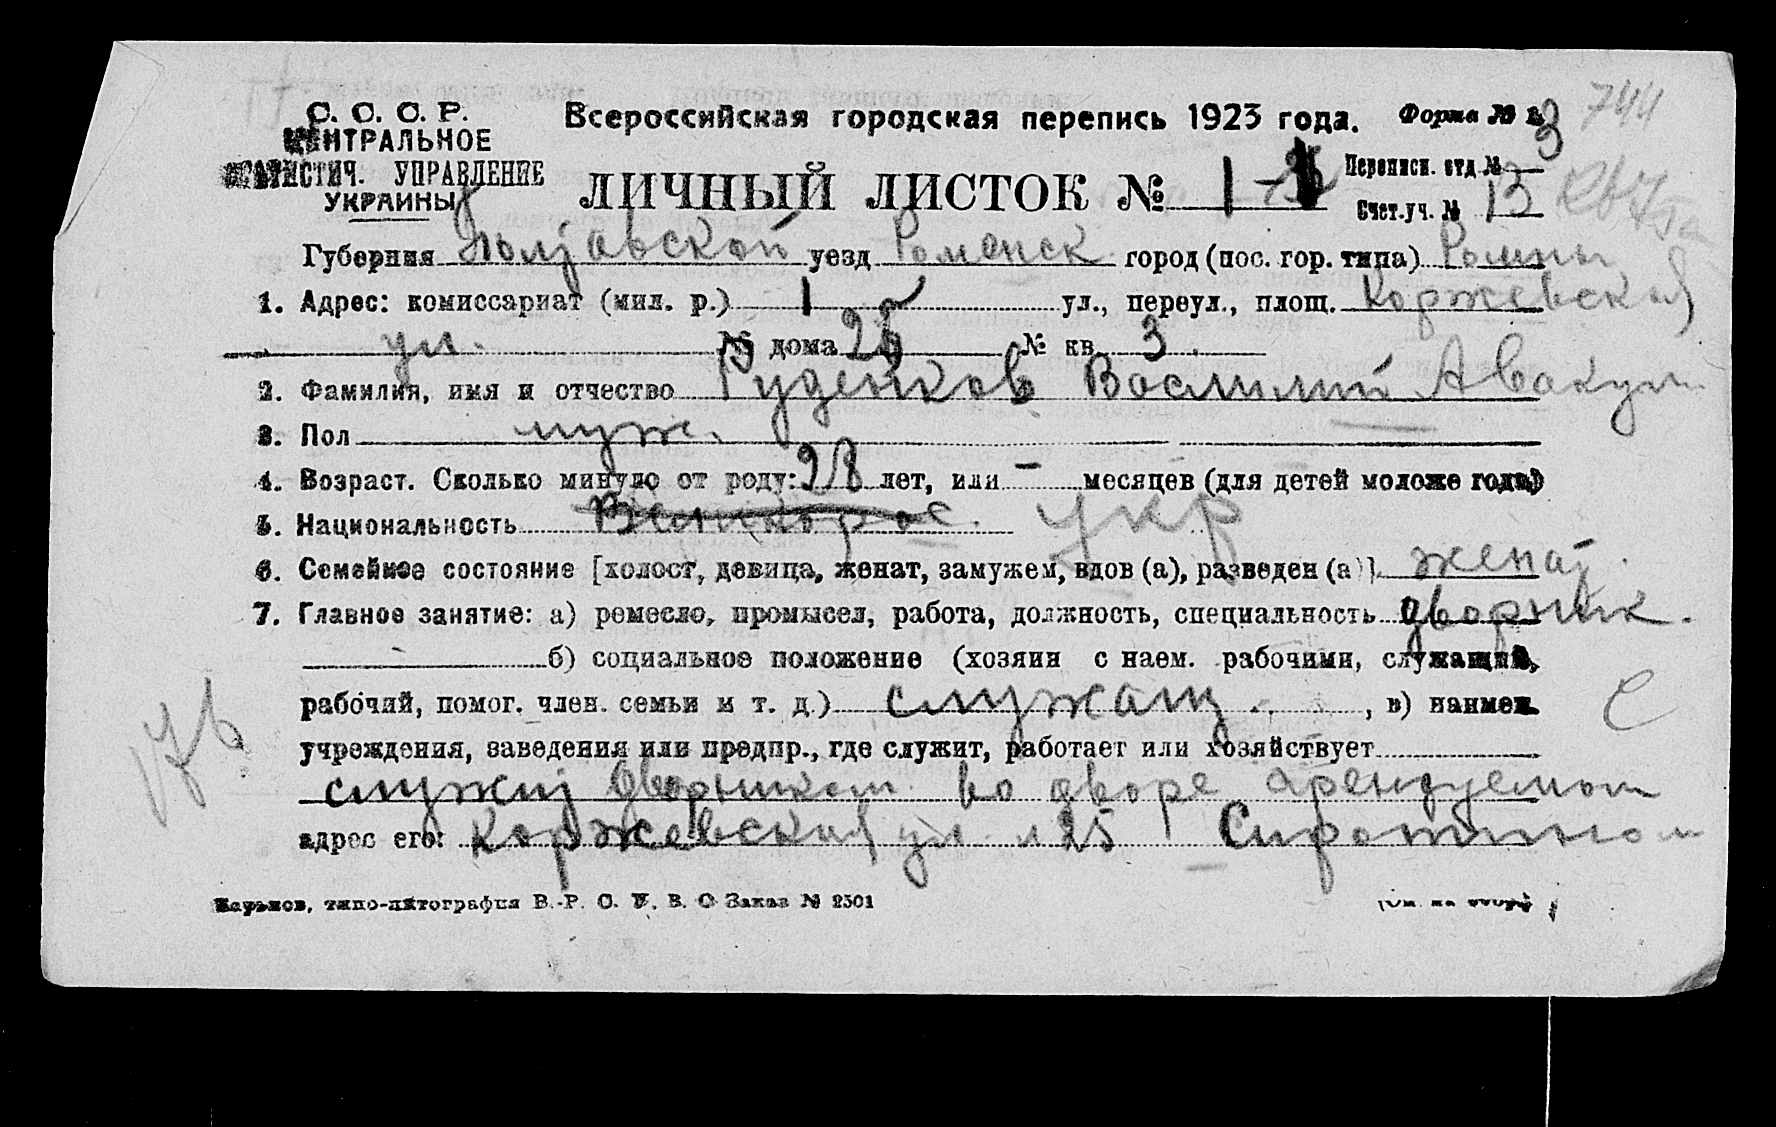 С. С. С. Р. Всероссийская городская перепись 1923 года. Форма № 3 744
ЦЕНТРАЛЬНОЕ
СТАТИСТИЧ. УПРАВЛЕНИЕ
УКРАИНЫ
ЛИЧНЫЙ ЛИСТОК № 1 -
Переписн. отд. № —
Счет. уч. № 13
Губерния Полтавской уезд Роменск город (пос. гор. типа) Ромны
1. Адрес: комиссариат (мил. р.) 1 ул., переул., площ. Коржевская
ул. № дома 25 № кв. 3.
2. Фамилия, имя и отчество Руденков Василий Авакум
3. Пол муж.
4. Возраст. Сколько минуло от роду: 28 лет, или — месяцев (для детей моложе года)
5. Национальность Великорос. укр
6. Семейное состояние [холост, девица, женат, замужем, вдов (а), разведен (а)]. женат.
7. Главное занятие: а) ремесло, промысел, работа, должность, специальность дворник.
б) социальное положение (хозяин с наем. рабочими, служащий,
рабочий, помог. член. семьи и т. д.) служащ. , в) наимен. С
учреждения, заведения или предпр., где служит, работает или хозяйствует
служит дворником во дворе арендуемом
адрес его: Коржевская ул. 25 Сиротином
Харьков, типо-литография В.-Р. С. У. В. О Заказ № 2501